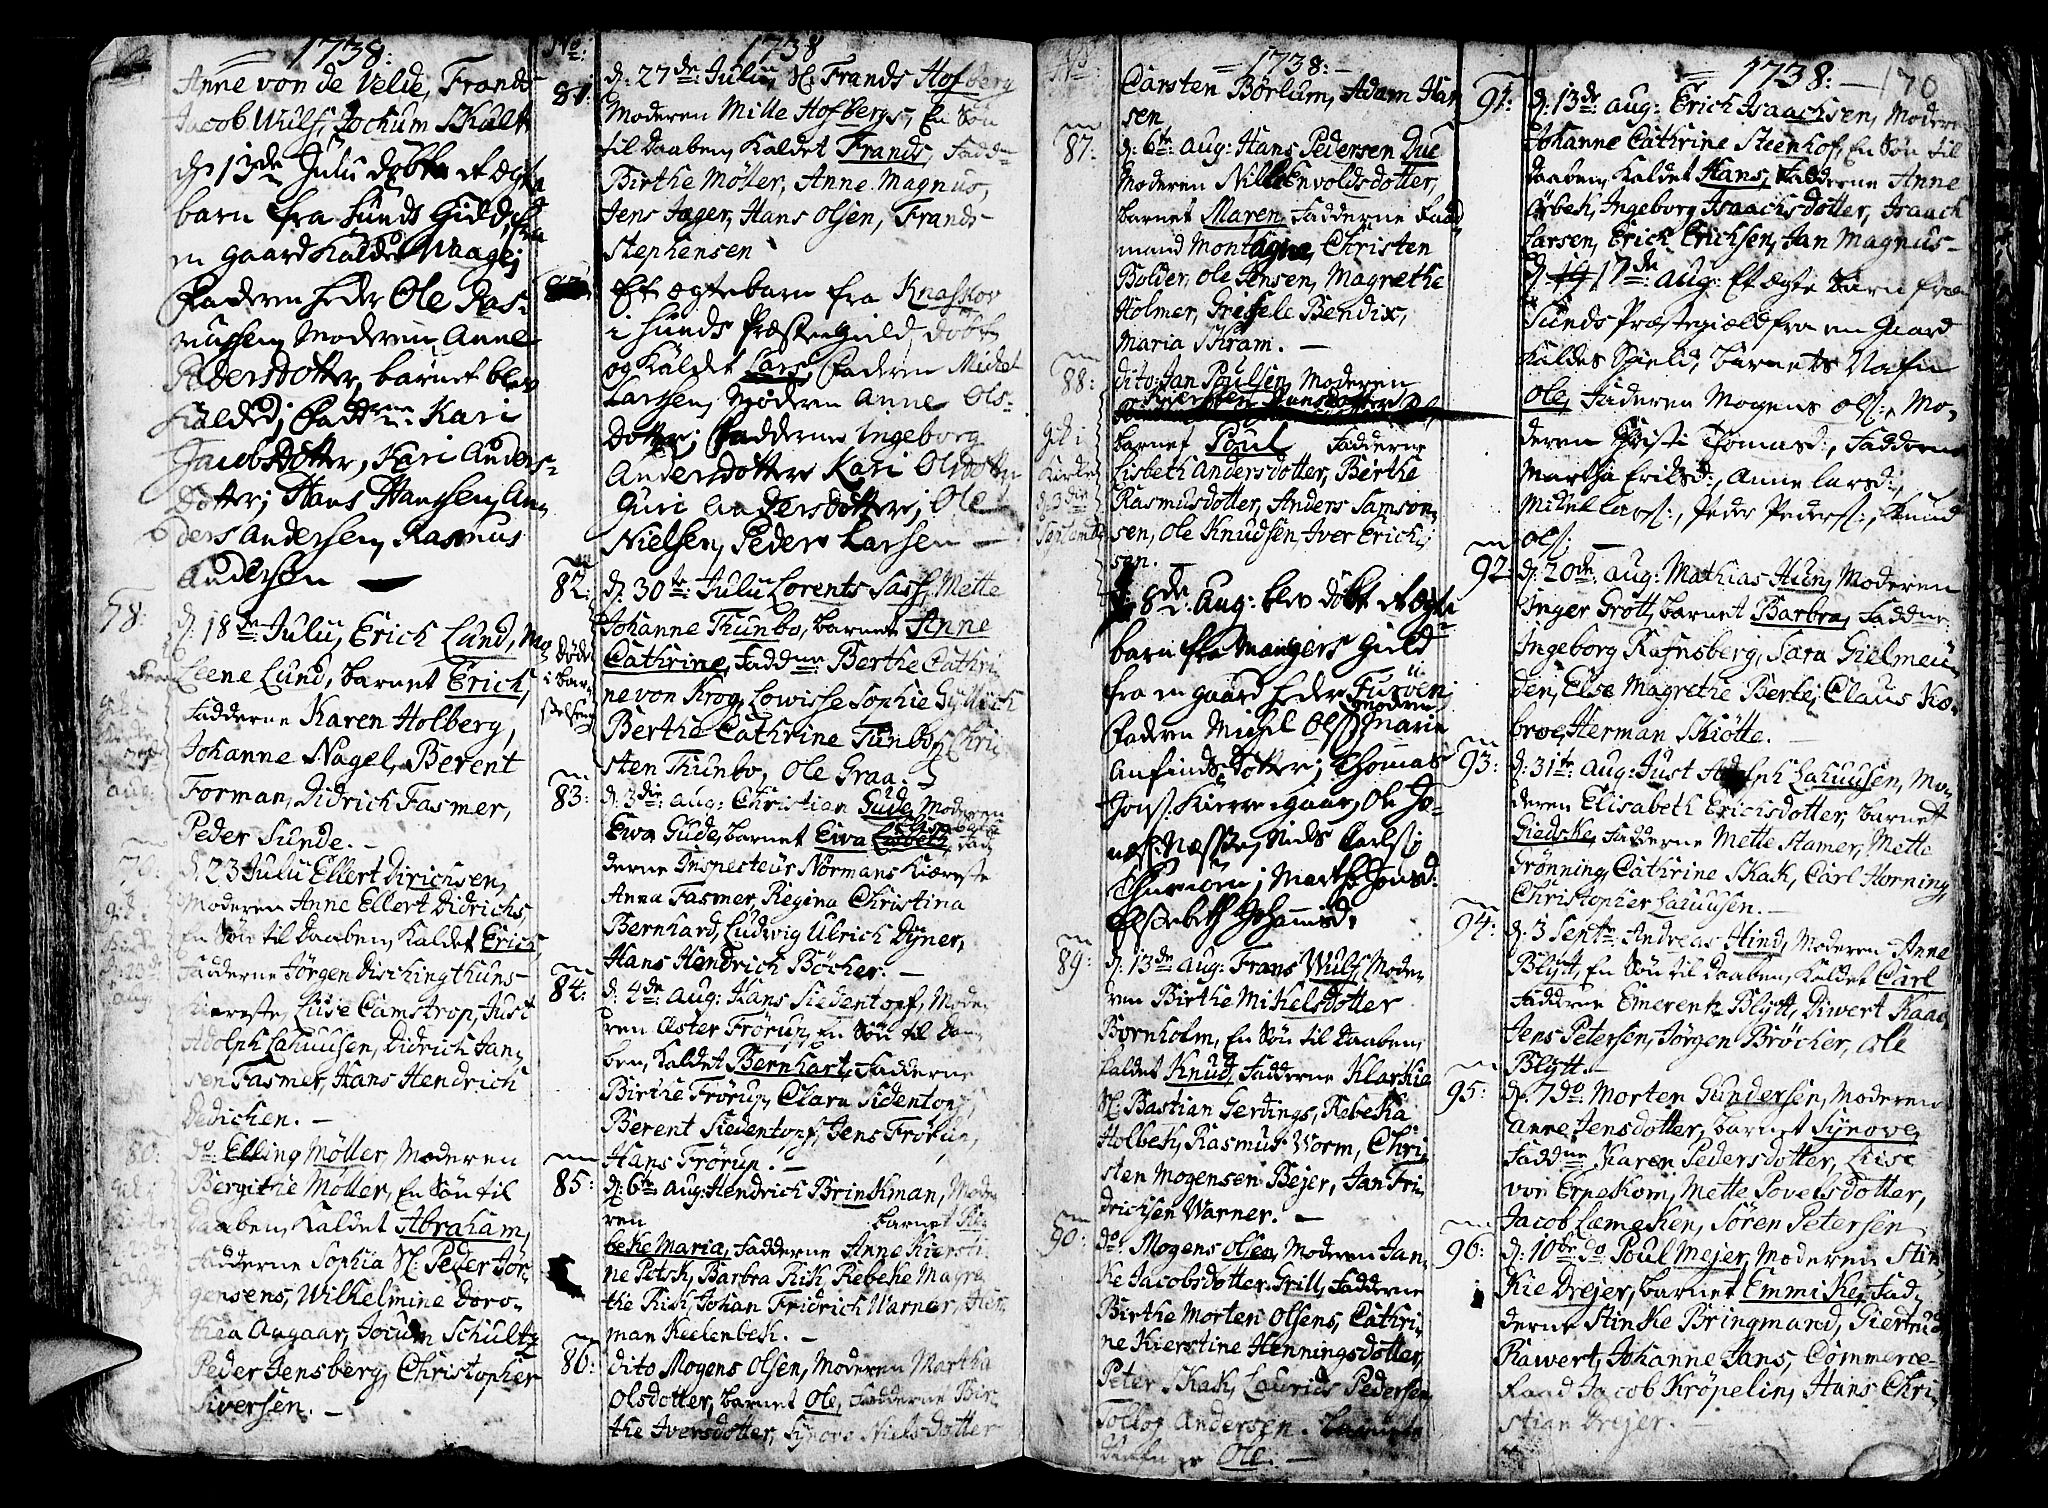 1738:
Anne von de Velde, Frands
Jacob Wulf, Jochum Skult
d. 13de Julii døbte et Ægte
barn fra Sunds Gield, fra
en gaard kaldet Waage;
Faderen heder Ole Ras-
mussen, Moderen Anne
Pedersdotter, barnet blev
kaldet; Fadderne: Kari
Jacobsdotter, Kari Anders-
dotter; Hans Hanssen, An-
ders Andersen, Rasmus
Andersen
78:
d: 18de Julii, Erich Lund, Mo-
Leene Lund, barnet Erich,
Fadderne Karen Holberg,
Johanne Nagel, Berent
Forman, Didrich Fasmer,
Peder Sunde. —
79:
d. 23 Julii Ellert Dirichsen,
Moderen Anne Ellert Didrichs
En Søn til Daaben, kaldet Erich,
Fadderne Jørgen Dischingthuns
Kiæreste, Luise Camstrop, Just
Adolph Lahuusen, Didrich Jan-
sen Fasmer, Hans Hendrich
Dedichen. —
80:
do Elling Møller, Moderen
Bergithe Møller, En Søn til
Daaben, kaldet Abraham,
Fadderne Sophia Sl: Peder Jør-
gensens, Wilhelmine Doro-
thea Angaar, Jocum Schultz
Peder Jensberg, Christopher
Siversen. —
No:
1738
81:
d: 27de Julii, Sl: Frands Hofberg
Moderen Mille Hofbergs, En Søn
til Daaben, kaldet Frands, Fadd-
Birthe Møller, Anne Magnus,
Jens Jager, Hans Olsen, Frands
Stephensen
Et ægte barn fra Knasskov
i Sunds Præstegield, døbt
og kaldet Lars, Faderen Michel
Larssen, Moderen Anne Ols-
dotter; Fadderne Ingeborg
Andersdotter Kari Olsdotter
Guri Andersdotter; Ole
Nielsen, Peder Larsen —
82:
d: 30te: Julii Lorents Sass, Mette
Johanne Tunbo, barnet Anne
Cathrine, Faddne Berthe Cathri-
ne von Krog, Lowisse Sophie Gyllich
Berthe Cathrine Tunboy, Chri-
sten Thunbo, Ole Graa.
døde
i bar
selseng
83:
d: 3die: aug: Christian Gude Moderen
Ewa Gude, barnet Ewa Fad-
derne Inspecteur Normans Kiæreste
Anna Fasmer, Regina Christina
Bernhard, Ludwig Ulrich Dyner,
Hans Hendrich Böcher. —
84:
d: 4de: aug: Hans Siedentopf, Mode-
ren Æster Frörup, En Søn til Daa-
ben, kaldet Bernhart, Fadderne
Birthe Frörup, Clara Sidentopf,
Berent Siedentopf, Jens Frörup,
Hans Frörup. —
85:
d: 6te aug: Hendrich Brinkman, Mode-
ren barnet Re-
beke Maria, Fadderne Anne Kiersti-
ne Petsk, Barbra Risk, Rebeke Magre-
the Risk, Johan Fridrich Warner, Her-
man Keelenbek. —
86:
dito Mogens Olsen, Moderen Martha
Olsdotter, barnet Ole, Fadderne Bir-
the Iversdotter, Synove Nielsdotter
No:
1738:
Carsten Börlum, Adam Han
sen
87:
d: 6te: aug: Hans Pedersen Due
Moderen Nille Envoldsdotter,
barnet Maren, Fadderne Raad
mand Montagne, Christen
Bolder, Ole Jensen, Magrethe
Holmer, Grissele Bendix,
Maria Skram. —
88:
dito: Jan Poulsen, Moderen
barnet Poul Fadderne
Lisbeth Andersdotter, Berthe
Rasmusdotter, Anders Samson-
sen, Ole Knudsen, Iver Erich-
sen. —
gik i
Kirke
d: 3die
Septemb
8de: Aug: blev døbt et Ægte
barn fra Mangers Gield
fra en gaard heder
Faderen Michel Ols: Moderen Marie
Anfindsdotter; Thomas
Ole Jo-
Niels Carls:
Marthe Jonsd:
Elsebeth Johannisd:
89:
d: 13de aug: Frans Wulf, Mode-
ren Birthe Mikelsdotter
Bornholm, En Søn til Daaben,
kaldet Knud, Fadderne Klarkie
Sl: Bastian Gerdings, Rebeka
Holbek, Rasmus Worm, Chri-
sten Mogensen Bejer, Jan Fri-
drichsen Warner. —
90:
do Mogens Olsen, Moderen Jan-
ke Jacobsdotter Grill, Fadderne
Birthe Morten Olsens, Cathri-
ne Kierstine Henningsdotter,
Peter Skak, Laurids Pedersen,
Tollof Andersen. Barnets
Nafn er Ole. —
1738: — 170
91:
d: 13de aug: Erich Isaachsen, Modere
Johanne Cathrine Steenhof, En Søn til
Daaben, kaldet Hans, Fadderne Anne
Ørbek, Ingeborg Isaachsdotter, Isaach
Larsen, Erich Erichsen, Jan Magnus —
d: 17de aug: Et ægte barn fra
Sunds Præstegield fra en Gaard
kaldes Spield, barnets Nafn
Ole, Faderen Mogens Ols:, Mo-
deren Thomasd:, Fadderne
Martha Eriksd:, Anne Larsd:,
Mikel Lars:, Peder Peders:, Knud
Ols: —
92:
d: 20de: aug: Mathias Hun, Moderen
Inger Grott, barnet Barbra, Faddne
Ingeborg Rafnsberg, Sara Gielmeü-
den, Else Magrethe Berle, Claus Kø-
broe, Herman Skiøtte. —
93:
d: 31te: aug: Just Adolph Lahuusen, Mo-
deren Elisabeth Erichsdotter, barnet
Giedske, Fadderne Mette Stamer, Mette
Grønning, Cathrine Skak, Carl Horning,
Christopher Lahuusen. —
94:
d: 3 Septr: Andreas Hind, Moderen Anne
Blytt, En Søn til Daaben, kaldet Carl
Fadderne Emerentz Blytt, Diwert Kaas
Jens Petersen, Jørgen Brøcher, Ole
Blytt. —
95:
d: 7 do: Morten Gundersen, Moderen
Anne Jensdotter, barnet Synove,
Faddne Karen Pedersdotter, Luise
von Erpekom, Mette Povelsdotter,
Jacob Læmeken, Søren Petersen
96:
d: 10de do Poul Mejer, Moderen Stin-
kie Drejer, barnet Emmike, Fad-
derne Stinke Bringmand, Giertrud
Rawert, Johanne Jans, Commerce-
Raad Jacob Krøpelin, Hans Chri-
stian Drejer.